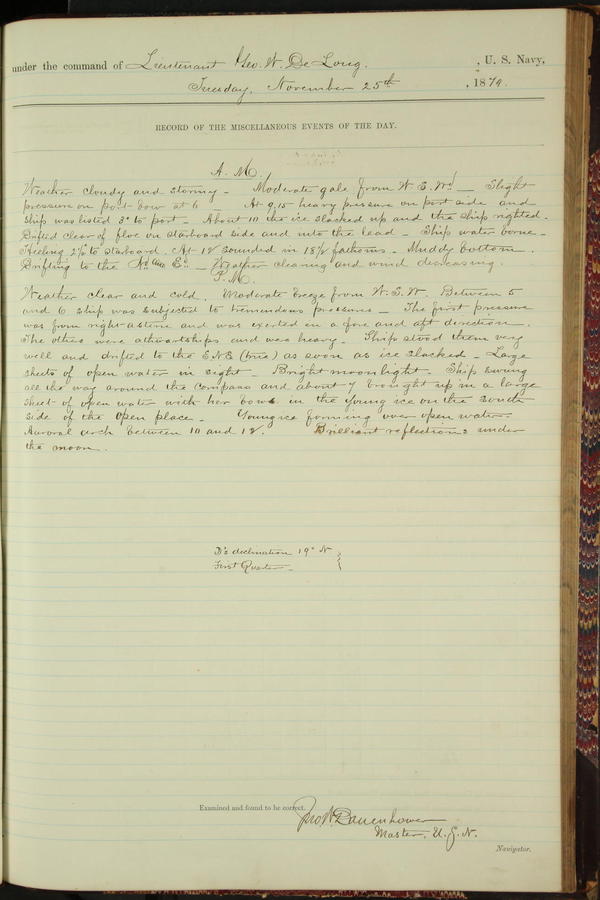 under the command of Lieutenant Geo. W. De Long, U. S. Navy,
Tuesday, November 25th, 1879.
RECORD OF THE MISCELLANEOUS EVENTS OF THE DAY.
A. M.
Weather cloudy and stormy - Moderate gale from W. S. Wd - Slight
pressure on port bow at 6 - At 9.15 heavy pressure on port side and
ship was listed 3° to port - About 10 the ice slacked up and the ship righted -
Drifted clear of floe on starboard side and into the lead - Ship water borne -
Heeling 2½° to starboard. At 12 sounded in 18½ fathoms - Muddy bottom.
Drifting to the Nd and Ed - Weather clearing and wind decreasing.
P. M.
Weather clear and cold. Moderate breeze from W. S. W. Between 5
and 6 ship was subjected to tremendous pressures - The first pressure
was from right astern and was exerted in a fore and aft direction.
The others were athwartships and was heavy. Ship stood them very
well and drifted to the ENE (true) as soon as ice slacked - Large
sheets of open water in sight - Bright moonlight - Ship swung
all the way around the compass and about 7 brought up in a large
sheet of open water with her bows in the young ice on the south
side of the open place - Young ice forming over open water -
Auroral arch between 10 and 12. Brilliant reflections under
the moon.
D's declination 19° N }
First Quarter -
Examined and found to be correct. Jno W. Danenhower
Master, U. S. N.
Navigator.